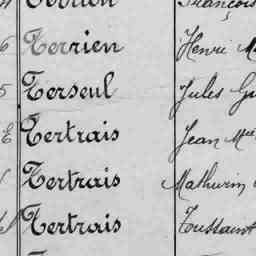 François
6 Terrien Henri
5 Terseul Jules
E Tertrais Jean Mie
Tertrais Mathurin
Tertrais Toussaint